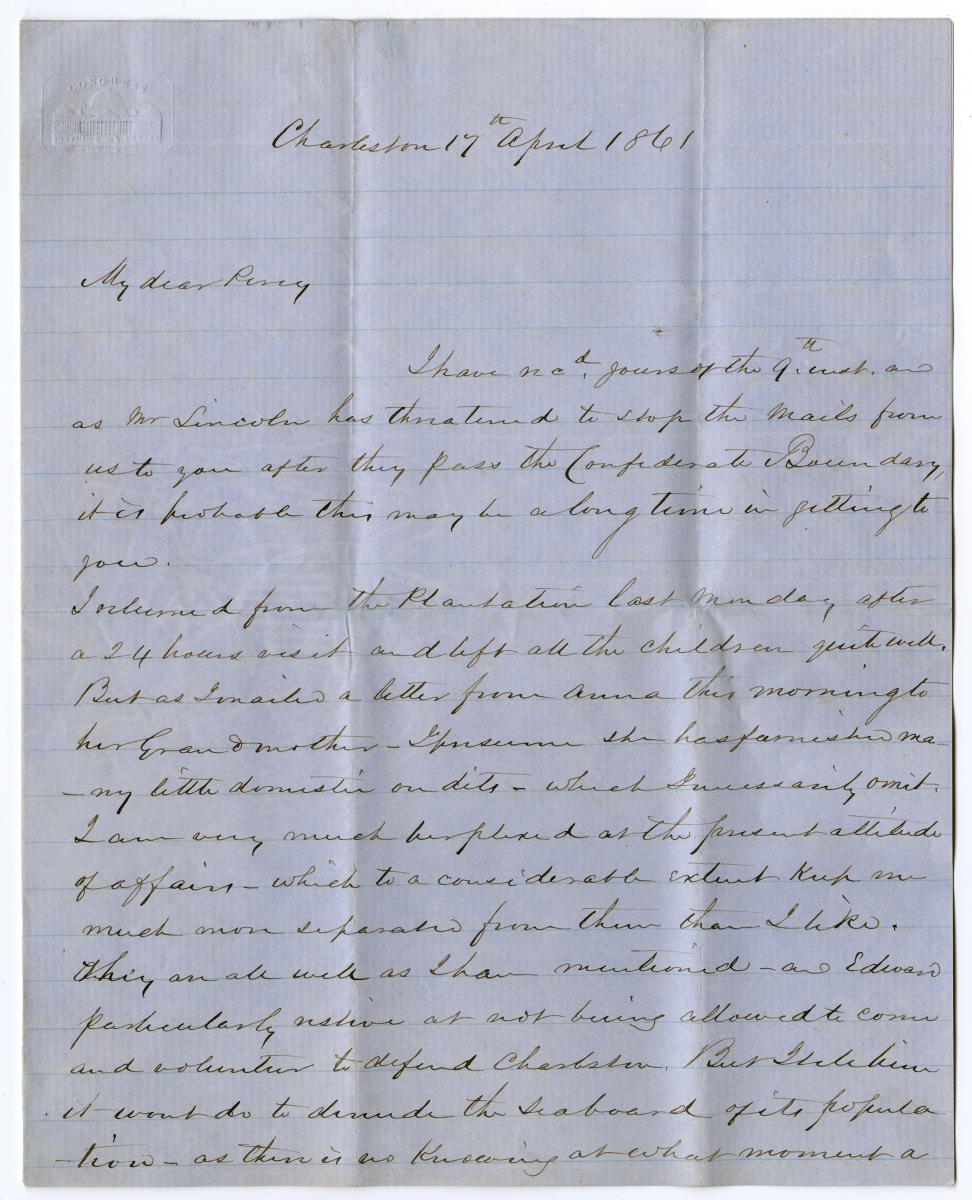 CONGRESS
Charleston 17th April 1861
My dear Percy
I have recd. yours of the 9th. inst. and
as Mr Lincoln has threatened to stop the Mails from
us to you after they pass the Confederate Boundary,
it is probable this may be a long time in getting to
you.
I returned from the Plantation last Monday after
a 24 hours visit and left all the children quite well.
But as I mailed a letter from Anna this morning to
her Grandmother - I presume she has furnished ma-
-ny little domestic on dits - which I necessarily omit.
I am very much perplexed at the present attitude
of affairs - which to a considerable extent keep me
much more separated from them than I like.
They are all well as I have mentioned - and Edward
particularly restive at not being allowed to come
and volunteer to defend Charleston. But I tell him
it wont do to denude the Seaboard of its popula
-tion - as there is no Knowing at what moment a